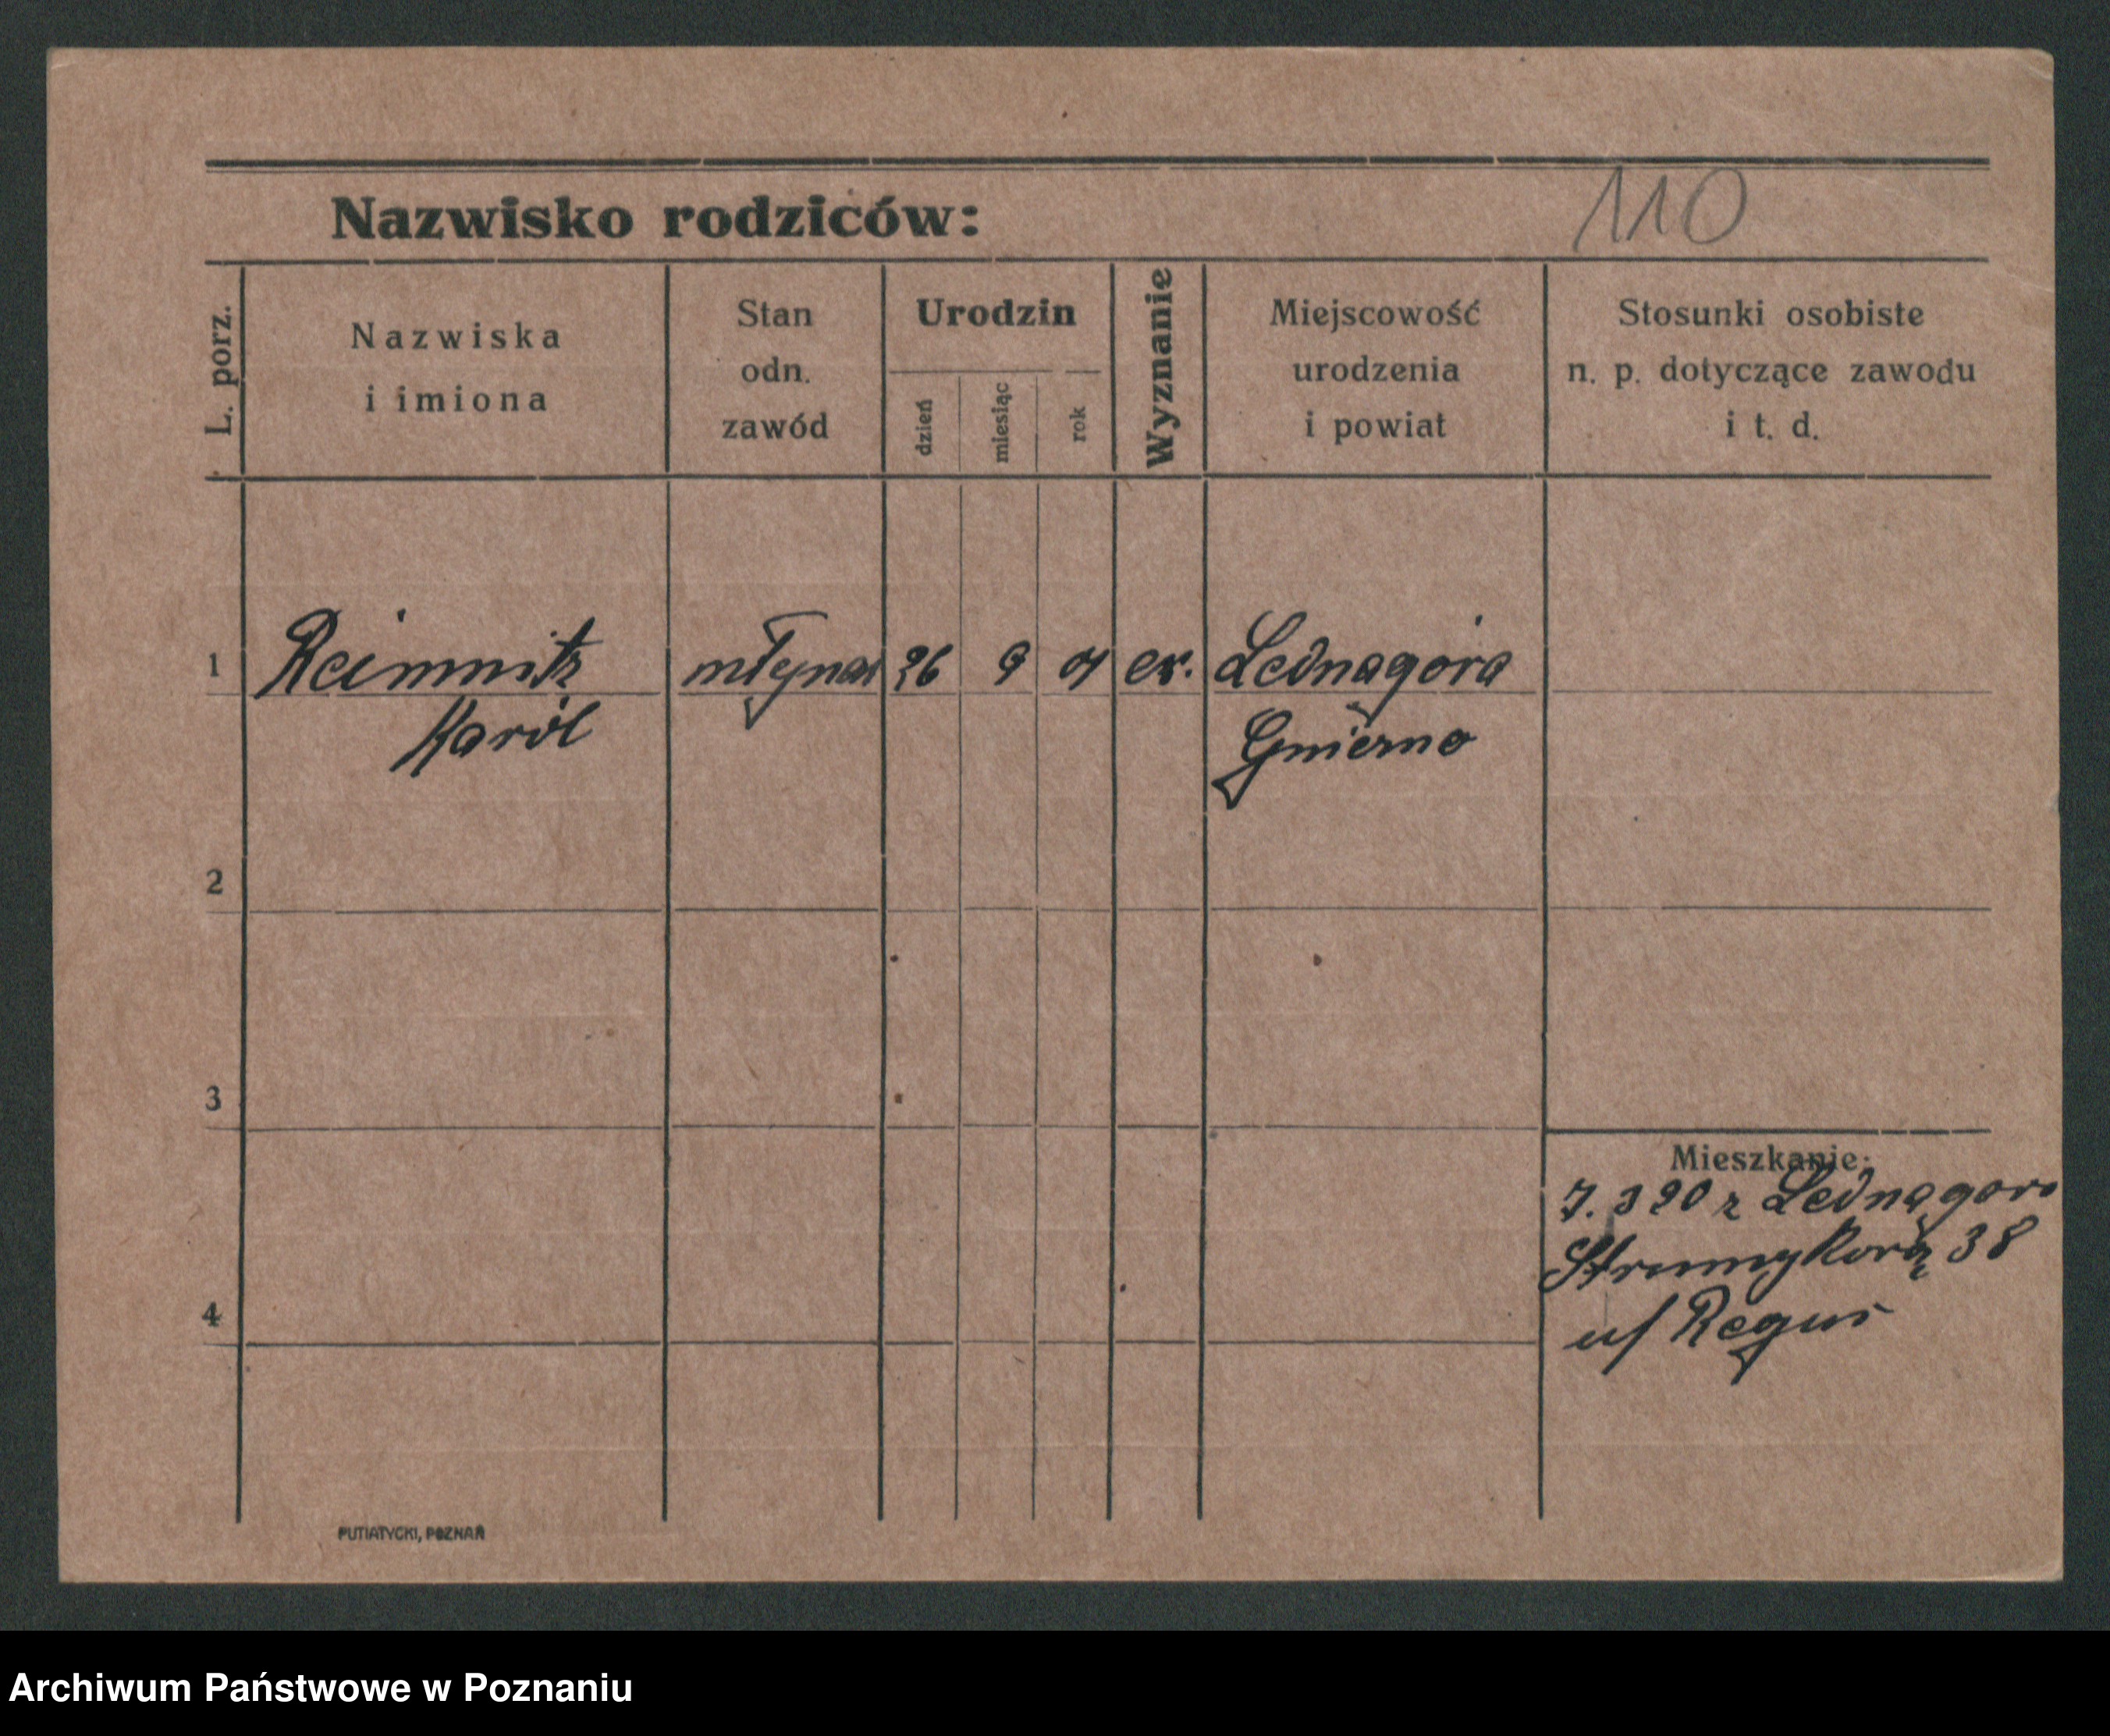 Nazwisko rodziców:
110
L. porz.
Nazwiska
i imiona
Stan
odn.
zawód
Urodzin
dzień
miesiąc
rok
Wyznanie
Miejscowość
urodzenia
i powiat
Stosunki osobiste
n. p. dotyczące zawodu
i t. d.
1
Reimnitz
Karól
młynar
26
9
01
ew.
Lednagóra
Gniezno
2
3
4
Mieszkanie:
7. 3 20 z Lednagóra
Strumykowa 38
u/
PUTIATYCKI, POZNAŃ
Archiwum Państwowe w Poznaniu